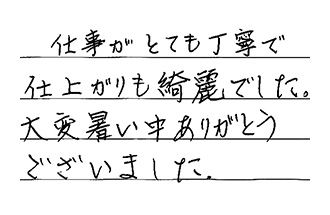 仕事がとても丁寧で
仕上がりも綺麗でした。
大変暑い中ありがとう
ございました.